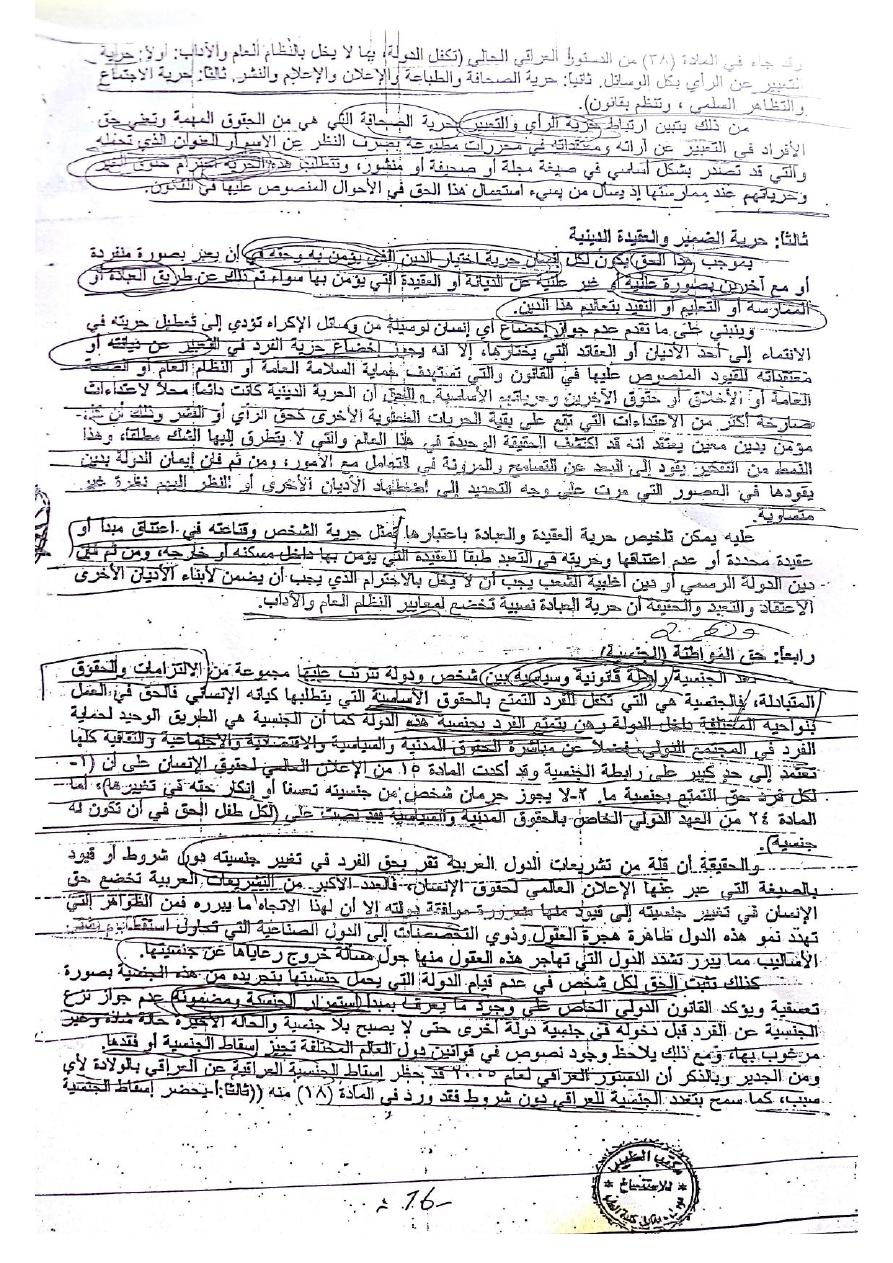 وقد جاء في المادة (٣٨) من الدستور العراقي الحالي (تكفل الدولة، بما لا يخل بالنظام العام والآداب: أولاً: حرية
التعبير عن الرأي بكل الوسائل. ثانياً: حرية الصحافة والطباعة والإعلان والإعلام والنشر. ثالثاً: حرية الاجتماع
والتظاهر السلمي ، وتنظم بقانون).
من ذلك يتبين ارتباط حرية الرأي والتعبير بحرية الصحافة التي هي من الحقوق المهمة وتعني حق
الأفراد في التعبير عن آرائه ومعتقداته في محررات مطبوعة بصرف النظر عن الاسم أو العنوان الذي تحمله
والتي قد تصدر بشكل أساسي في صيغة مجلة أو صحيفة أو منشور، وتتطلب هذه الحرية احترام حقوق الغير
وحرياتهم عند ممارستها إذ يسأل من يسيء استعمال هذا الحق في الأحوال المنصوص عليها في القانون.
ثالثاً: حرية الضمير والعقيدة الدينية
بموجب هذا الحق يكون لكل إنسان حرية اختيار الدين الذي يؤمن به وحقه في أن يعبر بصورة منفردة
أو مع آخرين بصورة علنية أو غير علنية عن الديانة أو العقيدة التي يؤمن بها سواء تم ذلك عن طريق العبادة أو
الممارسة أو التعليم أو التقيد بتعاليم هذا الدين.
وينبني على ما تقدم عدم جواز إخضاع أي إنسان لوسيلة من وسائل الإكراه تؤدي إلى تعطيل حريته في
الانتماء إلى أحد الأديان أو العقائد التي يختارها، إلا انه يجب إخضاع حرية الفرد في التعبير عن ديانته أو
معتقداته للقيود المنصوص عليها في القانون والتي تستهدف حماية السلامة العامة أو النظام العام أو الصحة
العامة أو الأخلاق أو حقوق الآخرين وحرياتهم الأساسية. والحق أن الحرية الدينية كانت دائماً محلاً لاعتداءات
صارخة أكثر من الاعتداءات التي تقع على بقية الحريات الأخرى كحق الرأي أو الفكر وذلك أن كل
مؤمن بدين معين يعتقد انه قد اكتشف الحقيقة الوحيدة في هذا العالم والتي لا يتطرق إليها الشك مطلقاً، وهذا
النمط من التفكير يقود إلى البعد عن التسامح والمرونة في التعامل مع الأمور، ومن ثم فان إيمان الدولة بدين
يقودها في العصور التي مرت على وجه التحديد إلى اضطهاد الأديان الأخرى أو النظر إليهم نظرة غير
متساوية.
عليه يمكن تلخيص حرية العقيدة والعبادة باعتبارها تمثل حرية الشخص وقناعته في اعتناق مبدأ أو
عقيدة محددة أو عدم اعتناقها وحريته في التعبد طبقاً للعقيدة التي يؤمن بها داخل مسكنه أو خارجه، ومن ثم
دين الدولة الرسمي أو دين أغلبية الشعب يجب أن لا يخل بالاحترام الذي يجب أن يضمن لأبناء الأديان الأخرى
الاعتقاد والتعبد والحقيقة أن حرية العبادة نسبية تخضع لمعايير النظام العام والآداب.
رابعاً: حق المواطنة (الجنسية)
تعد الجنسية رابطة قانونية وسياسية بين شخص ودولة تترتب عليها مجموعة من الالتزامات والحقوق
المتبادلة، فالجنسية هي التي تكفل للفرد التمتع بالحقوق الأساسية التي يتطلبها كيانه الإنساني فالحق في العمل
بنواحيه المختلفة داخل الدولة رهن بتمتع الفرد بجنسية هذه الدولة كما أن الجنسية هي الطريق الوحيد لحماية
الفرد في المجتمع الدولي فضلاً عن مباشرة الحقوق المدنية والسياسية والاقتصادية والاجتماعية والثقافية كلها
تعتمد إلى حد كبير على رابطة الجنسية وقد أكدت المادة ١٥ من الإعلان العالمي لحقوق الإنسان على أن (١-
لكل فرد حق التمتع بجنسية ما. ٢-لا يجوز حرمان شخص من جنسيته تعسفاً أو إنكار حقه في تغييرها)، أما
المادة ٢٤ من العهد الدولي الخاص بالحقوق المدنية والسياسية فقد نصت على (لكل طفل الحق في أن تكون له
جنسية).
والحقيقة أن قلة من تشريعات الدول العربية تقر بحق الفرد في تغيير جنسيته دون شروط أو قيود
بالصيغة التي عبر عنها الإعلان العالمي لحقوق الإنسان، فالعدد الأكبر من التشريعات العربية تخضع حق
الإنسان في تغيير جنسيته إلى قيود منها ضرورة موافقة دولته إلا أن لهذا الاتجاه ما يبرره فمن الظواهر التي
تهدد نمو هذه الدول ظاهرة هجرة العقول وذوي التخصصات إلى الدول الصناعية التي تحاول استقطابهم بشتى
الأساليب مما يبرر تشدد الدول التي تهاجر هذه العقول منها حول مسألة خروج رعاياها عن جنسيتها.
كذلك تثبت الحق لكل شخص في عدم قيام الدولة التي يحمل جنسيتها بتجريده من هذه الجنسية بصورة
تعسفية ويؤكد القانون الدولي الخاص على وجود ما يعرف بمبدأ استمرار الجنسية ومضمونه عدم جواز نزع
الجنسية عن الفرد قبل دخوله في جنسية دولة أخرى حتى لا يصبح بلا جنسية والحالة الأخيرة حالة شاذة وغير
مرغوب بها، ومع ذلك يلاحظ وجود نصوص في قوانين دول العالم المختلفة تجيز إسقاط الجنسية أو فقدها
ومن الجدير وبالذكر أن الدستور العراقي لعام ٢٠٠٥ قد حظر إسقاط الجنسية العراقية عن العراقي بالولادة لأي
سبب، كما سمح بتعدد الجنسية للعراقي دون شروط فقد ورد في المادة (١٨) منه ((ثالثاً:أ-يحضر إسقاط الجنسية
16
مكتب الطيب
للاستنساخ